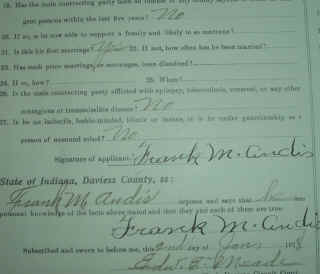 gent persons within the last five years? No
20. If so, is he now able to support a family and likely to so continue?
21. Is this his first marriage? Yes 22. If not, how often has he been married?
23. Has such prior marriage, or marriages, been dissolved?
24. If so, how? 25. When?
26. Is the male contracting party afflicted with epilepsy, tuberculosis, venereal, or any other
contagious or transmissible disease? No
27. Is he an imbecile, feeble-minded, idiotic or insane, or is he under guardianship as a
person of unsound mind? No
Signature of applicant: Frank M. Andis
State of Indiana, Daviess County, ss:
Frank M Andis deposes and says that he has
personal knowledge of the facts above stated and that they and each of them are true.
Frank M. Andis
Subscribed and sworn to before me, this 2nd day of Jan'y
Court